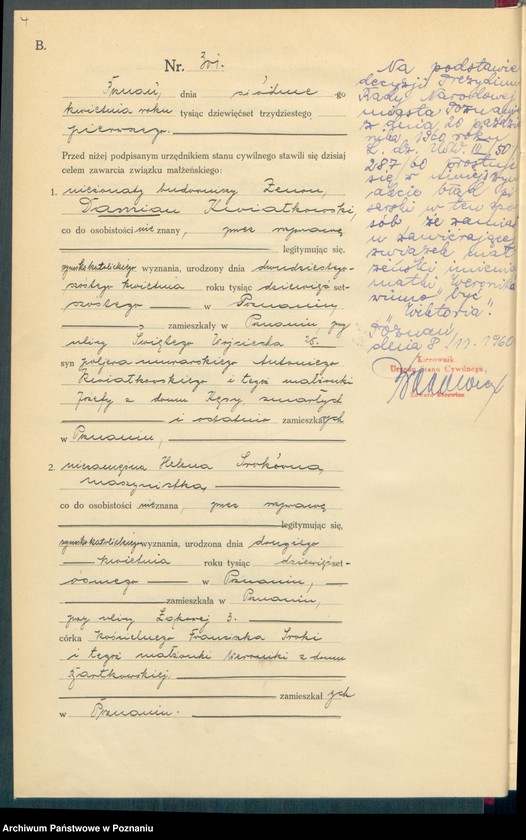 4
B.
Nr. 3
Poznań, dnia siódme go
kwietnia roku tysiąc dziewięćset trzydziestego
pierwszego.
Przed niżej podpisanym urzędnikiem stanu cywilnego stawili się dzisiaj
celem zawarcia związku małżeńskiego:
1. nieżonaty budowniczy Zenon,
Damian Kwiatkowski,
co do osobistości nieznany, przez rozprawę
legitymując się,
rzymskokatolickiego wyznania, urodzony dnia dwudziestego-
szóstego kwietnia roku tysiąc dziewięćset-
szóstego w Poznaniu,
zamieszkały w Poznaniu, przy
ulicy Świętego Wojciecha 28.
syn poljera murarskiego Antoniego
Kwiatkowskiego i tegoż małżonki
Józefy z domu Kęsy zmarłych
i ostatnio zamieszkałych
w Poznaniu,
2. niezamężna Helena Srokówna,
maszynistka,
co do osobistości nieznana, przez rozprawę
legitymując się,
rzymskokatolickiego wyznania, urodzona dnia drugiego
kwietnia roku tysiąc dziewięćset-
ósmego w Poznaniu,
zamieszkała w Poznaniu,
przy ulicy Łąkowej 3.
córka kościelnego Franciszka Sroki
i tegoż małżonki Weroniki z domu
Żartkowskiej
zamieszkałych
w Poznaniu.
Na podstawie
decyzji Prezydium
Rady Narodowej
miasta Poznania
z dnia 20 paździer
nika 1960 roku
L. dz. USW. III/50/
287/60 prostuje
się w niniejszym
akcie błąd pi-
sarski w ten spo
sób że zamiast
w zawierającej
związek mał
żeński imienia
matki "Weronika"
winno być
"Wiktoria".
Poznań,
dnia 8/11. 1960
Kierownik
Urzędu Stanu Cywilnego,
Archiwum Państwowe w Poznaniu